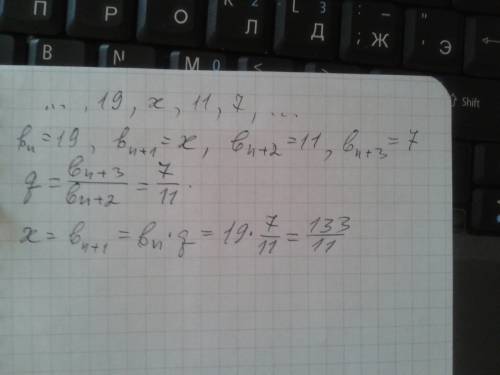 П Р О Л Д Ж Э
В N М 0 < > Shift
..., 19, x, 11, 7, ...
bₙ=19, bₙ₊₁=x, bₙ₊₂=11, bₙ₊₃=7
q = bₙ₊₃/bₙ₊₂ = 7/11.
x = bₙ₊₁ = bₙ·q = 19·7/11 = 133/11